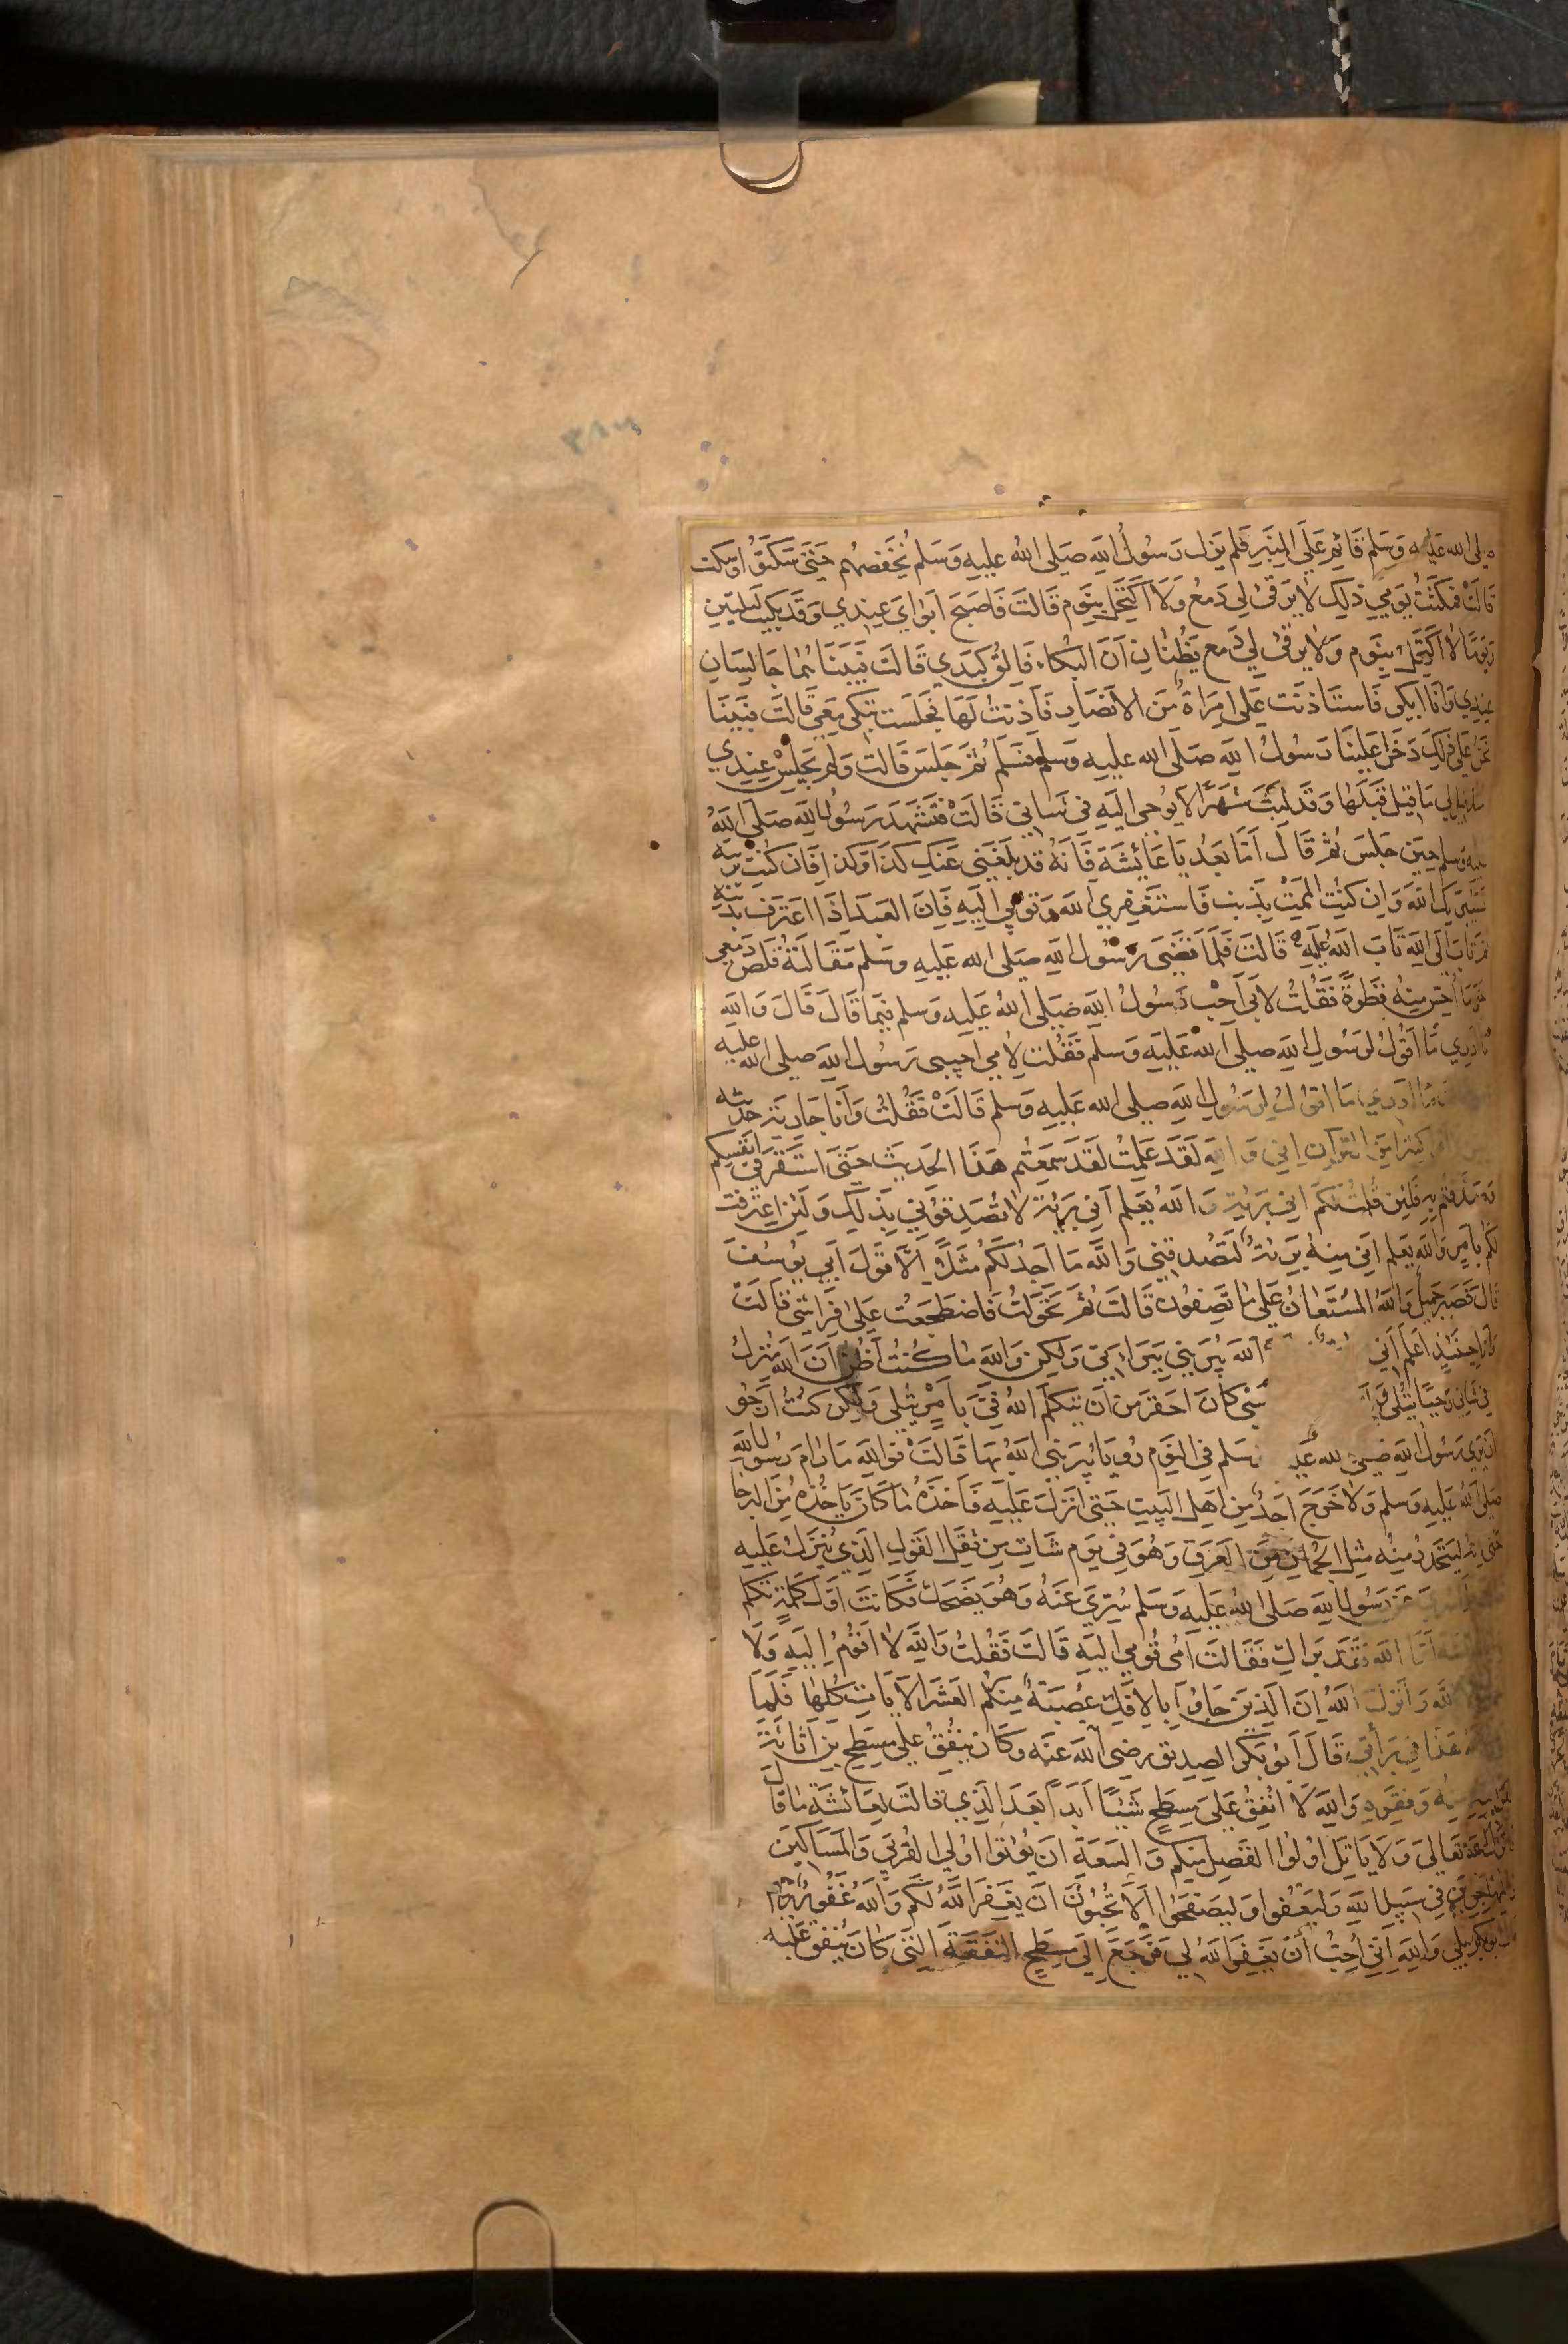 صلى الله عليه وسلم قائم على المنبر فلم يزل رسول الله صلى الله عليه وسلم يخفضهم حتى سكتوا وسكت
قالت فمكثت يومي ذلك لا يرقى لي دمع ولا اكتحل بنوم قالت فاصبح ابواي عندي وقد بكيت ليلتين
ويوما لا اكتحل بنوم ولا يرقى لي دمع يظنان ان البكاء فالق كبدي قالت فبينا هما جالسان
عندي وانا ابكي فاستاذنت علي امراة من الانصار فاذنت لها فجلست تبكي معي قالت فبينا
نحن على ذلك دخل علينا رسول الله صلى الله عليه وسلم فسلم ثم جلس قالت ولم يجلس عندي
منذ قيل لي ما قيل قبلها وقد لبث شهرا لا يوحى اليه في شاني قالت فتشهد رسول الله صلى الله
عليه وسلم حين جلس ثم قال اما بعد يا عائشة فانه قد بلغني عنك كذا وكذا فان كنت برية
فسيبريك الله وان كنت الممت بذنب فاستغفري الله وتوبي اليه فان العبد اذا اعترف بذنبه
ثم تاب الى الله تاب الله عليه قالت فلما قضى رسول الله صلى الله عليه وسلم مقالته قلص دمعي
حتى ما احس منه قطرة فقلت لابي احب رسول الله صلى الله عليه وسلم فيما قال قال والله
ما ادري ما اقول لرسول الله صلى الله عليه وسلم فقلت لامي اجيبي رسول الله صلى الله عليه
ما ادري ما اقول لرسول الله صلى الله عليه وسلم قالت فقلت وانا جارية حديثه
كثيرا من القران اني والله لقد علمت لقد سمعتم هذا الحديث حتى استقر في انفسكم
وصدقتم به فلئن قلت لكم اني برية والله يعلم اني برية لا تصدقوني بذلك ولئن اعترفت
لكم بامر والله يعلم اني منه برية لتصدقني والله ما اجد لكم مثلا الا قول ابي يوسف
قال فصبر جميل والله المستعان على ما تصفون قالت ثم تحولت فاضطجعت على فراشي قالت
وانا حينئذ اعلم اني الله يبريني ببراءتي ولكن والله ما كنت اظن ان الله منزل
في شاني وحيا يتلى شاني كان احقر من ان يتكلم الله في بامر يتلى ولكن كنت ارجو
ان يرى رسول الله صلى الله عليه وسلم في النوم رويا يبريني الله بها قالت فوالله ما رام رسول الله
صلى الله عليه وسلم ولا خرج احد من اهل البيت حتى انزل عليه فاخذه ما كان ياخذه من البرحا
حتى انه ليتحدر منه مثل الجمان من العرق وهو في يوم شات من ثقل القول الذي ينزل عليه
سري عن رسول الله صلى الله عليه وسلم سري عنه وهو يضحك فكانت اول كلمة تكلم
اما الله فقد براك فقالت امي قومي اليه قالت فقلت والله لا اقوم اليه ولا
الله وانزل الله ان الذين جاؤا بالافك عصبة منكم العشر الايات كلها فلما
هذا في براتي قال ابو بكر الصديق رضي الله عنه وكان ينفق على مسطح بن اثاثة
منه وفقره والله لا انفق على مسطح شيئا ابدا بعد الذي قالت لعائشة ما قال
تعالى ولا ياتل اولوا الفضل منكم والسعة ان يؤتوا اولي القربى والمساكين
والمهاجرين في سبيل الله وليعفوا وليصفحوا الا تحبون ان يغفر الله لكم والله غفور رحيم
قال ابو بكر بلى والله اني احب ان يغفر الله لي فرجع الى مسطح النفقة التي كان ينفق عليه